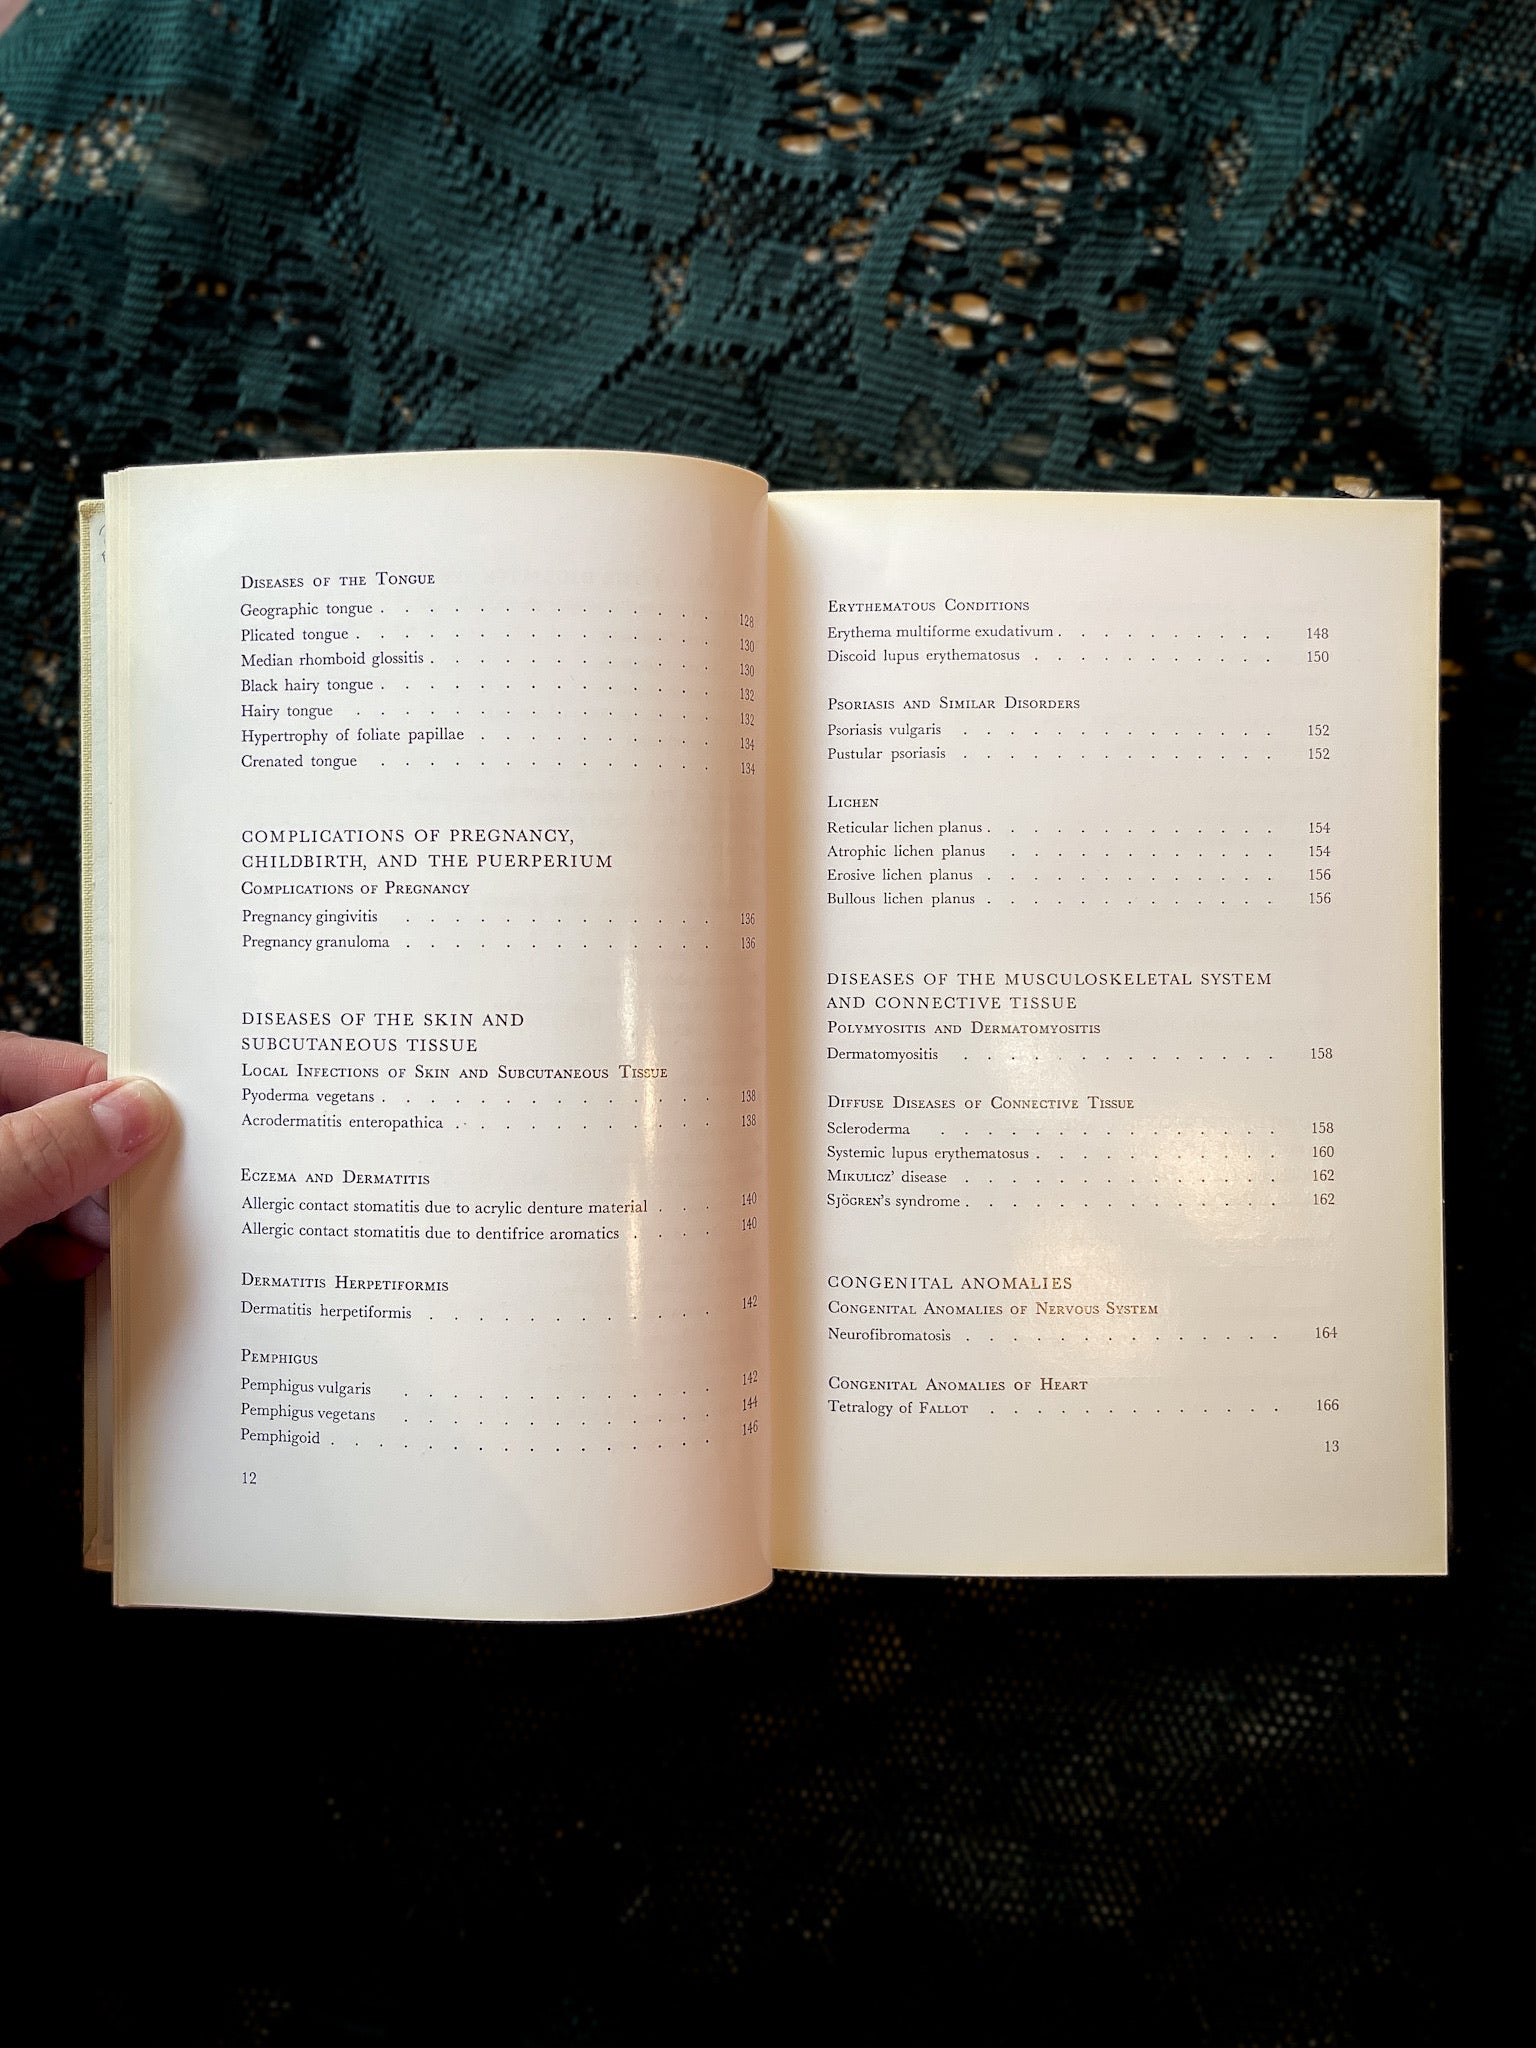 DISEASES OF THE TONGUE
Geographic tongue . . . . . . . . . . . . . 128
Plicated tongue . . . . . . . . . . . . . 130
Median rhomboid glossitis . . . . . . . . . . . 130
Black hairy tongue . . . . . . . . . . . . . 132
Hairy tongue . . . . . . . . . . . . . 132
Hypertrophy of foliate papillae . . . . . . . . . . 134
Crenated tongue . . . . . . . . . . . . . 134
COMPLICATIONS OF PREGNANCY,
CHILDBIRTH, AND THE PUERPERIUM
COMPLICATIONS OF PREGNANCY
Pregnancy gingivitis . . . . . . . . . . . . 136
Pregnancy granuloma . . . . . . . . . . . . 136
DISEASES OF THE SKIN AND
SUBCUTANEOUS TISSUE
LOCAL INFECTIONS OF SKIN AND SUBCUTANEOUS TISSUE
Pyoderma vegetans . . . . . . . . . . . . 138
Acrodermatitis enteropathica . . . . . . . . . . 138
ECZEMA AND DERMATITIS
Allergic contact stomatitis due to acrylic denture material . . . 140
Allergic contact stomatitis due to dentifrice aromatics . . . . 140
DERMATITIS HERPETIFORMIS
Dermatitis herpetiformis . . . . . . . . . . . 142
PEMPHIGUS
Pemphigus vulgaris . . . . . . . . . . . . 142
Pemphigus vegetans . . . . . . . . . . . . 144
Pemphigoid . . . . . . . . . . . . . . 146
12
ERYTHEMATOUS CONDITIONS
Erythema multiforme exudativum . . . . . . . . . 148
Discoid lupus erythematosus . . . . . . . . . . 150
PSORIASIS AND SIMILAR DISORDERS
Psoriasis vulgaris . . . . . . . . . . . . . 152
Pustular psoriasis . . . . . . . . . . . . . 152
LICHEN
Reticular lichen planus . . . . . . . . . . . . 154
Atrophic lichen planus . . . . . . . . . . . 154
Erosive lichen planus . . . . . . . . . . . . 156
Bullous lichen planus . . . . . . . . . . . . 156
DISEASES OF THE MUSCULOSKELETAL SYSTEM
AND CONNECTIVE TISSUE
POLYMYOSITIS AND DERMATOMYOSITIS
Dermatomyositis . . . . . . . . . . . . . 158
DIFFUSE DISEASES OF CONNECTIVE TISSUE
Scleroderma . . . . . . . . . . . . . . 158
Systemic lupus erythematosus . . . . . . . . . . 160
MIKULICZ' disease . . . . . . . . . . . . . 162
SJÖGREN's syndrome . . . . . . . . . . . . . 162
CONGENITAL ANOMALIES
CONGENITAL ANOMALIES OF NERVOUS SYSTEM
Neurofibromatosis . . . . . . . . . . . . . 164
CONGENITAL ANOMALIES OF HEART
Tetralogy of FALLOT . . . . . . . . . . . . 166
13